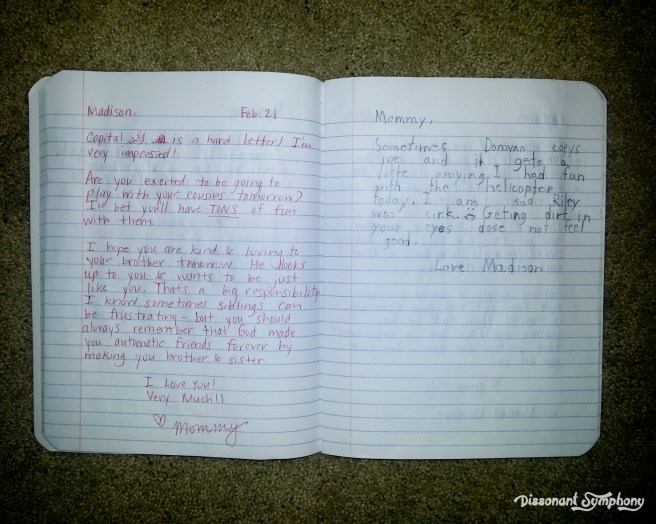 Madison, Feb. 21
Capital is a hard letter! I'm
very impressed!
Are you excited to be going to
play with your cousins tomorrow?
I'll bet you'll have TONS of fun
with them.
I hope you are kind & loving to
your brother tomorrow. He looks
up to you & wants to be just
like you. That's a big responsibility.
I know sometimes siblings can
be frustrating - but you should
always remember that God made
you automatic friends forever by
making you brother & sister.
I Love You!
Very Much!!
♡ Mommy
Mommy,
Sometimes Donovan copys
me and it gets a
little anoying. I had fun
with the helicopter
today. I am sad Riley
was sick. ☹ Geting dirt in
your eyes dose not feel
good.
Love Madison
Dissonant Symphony